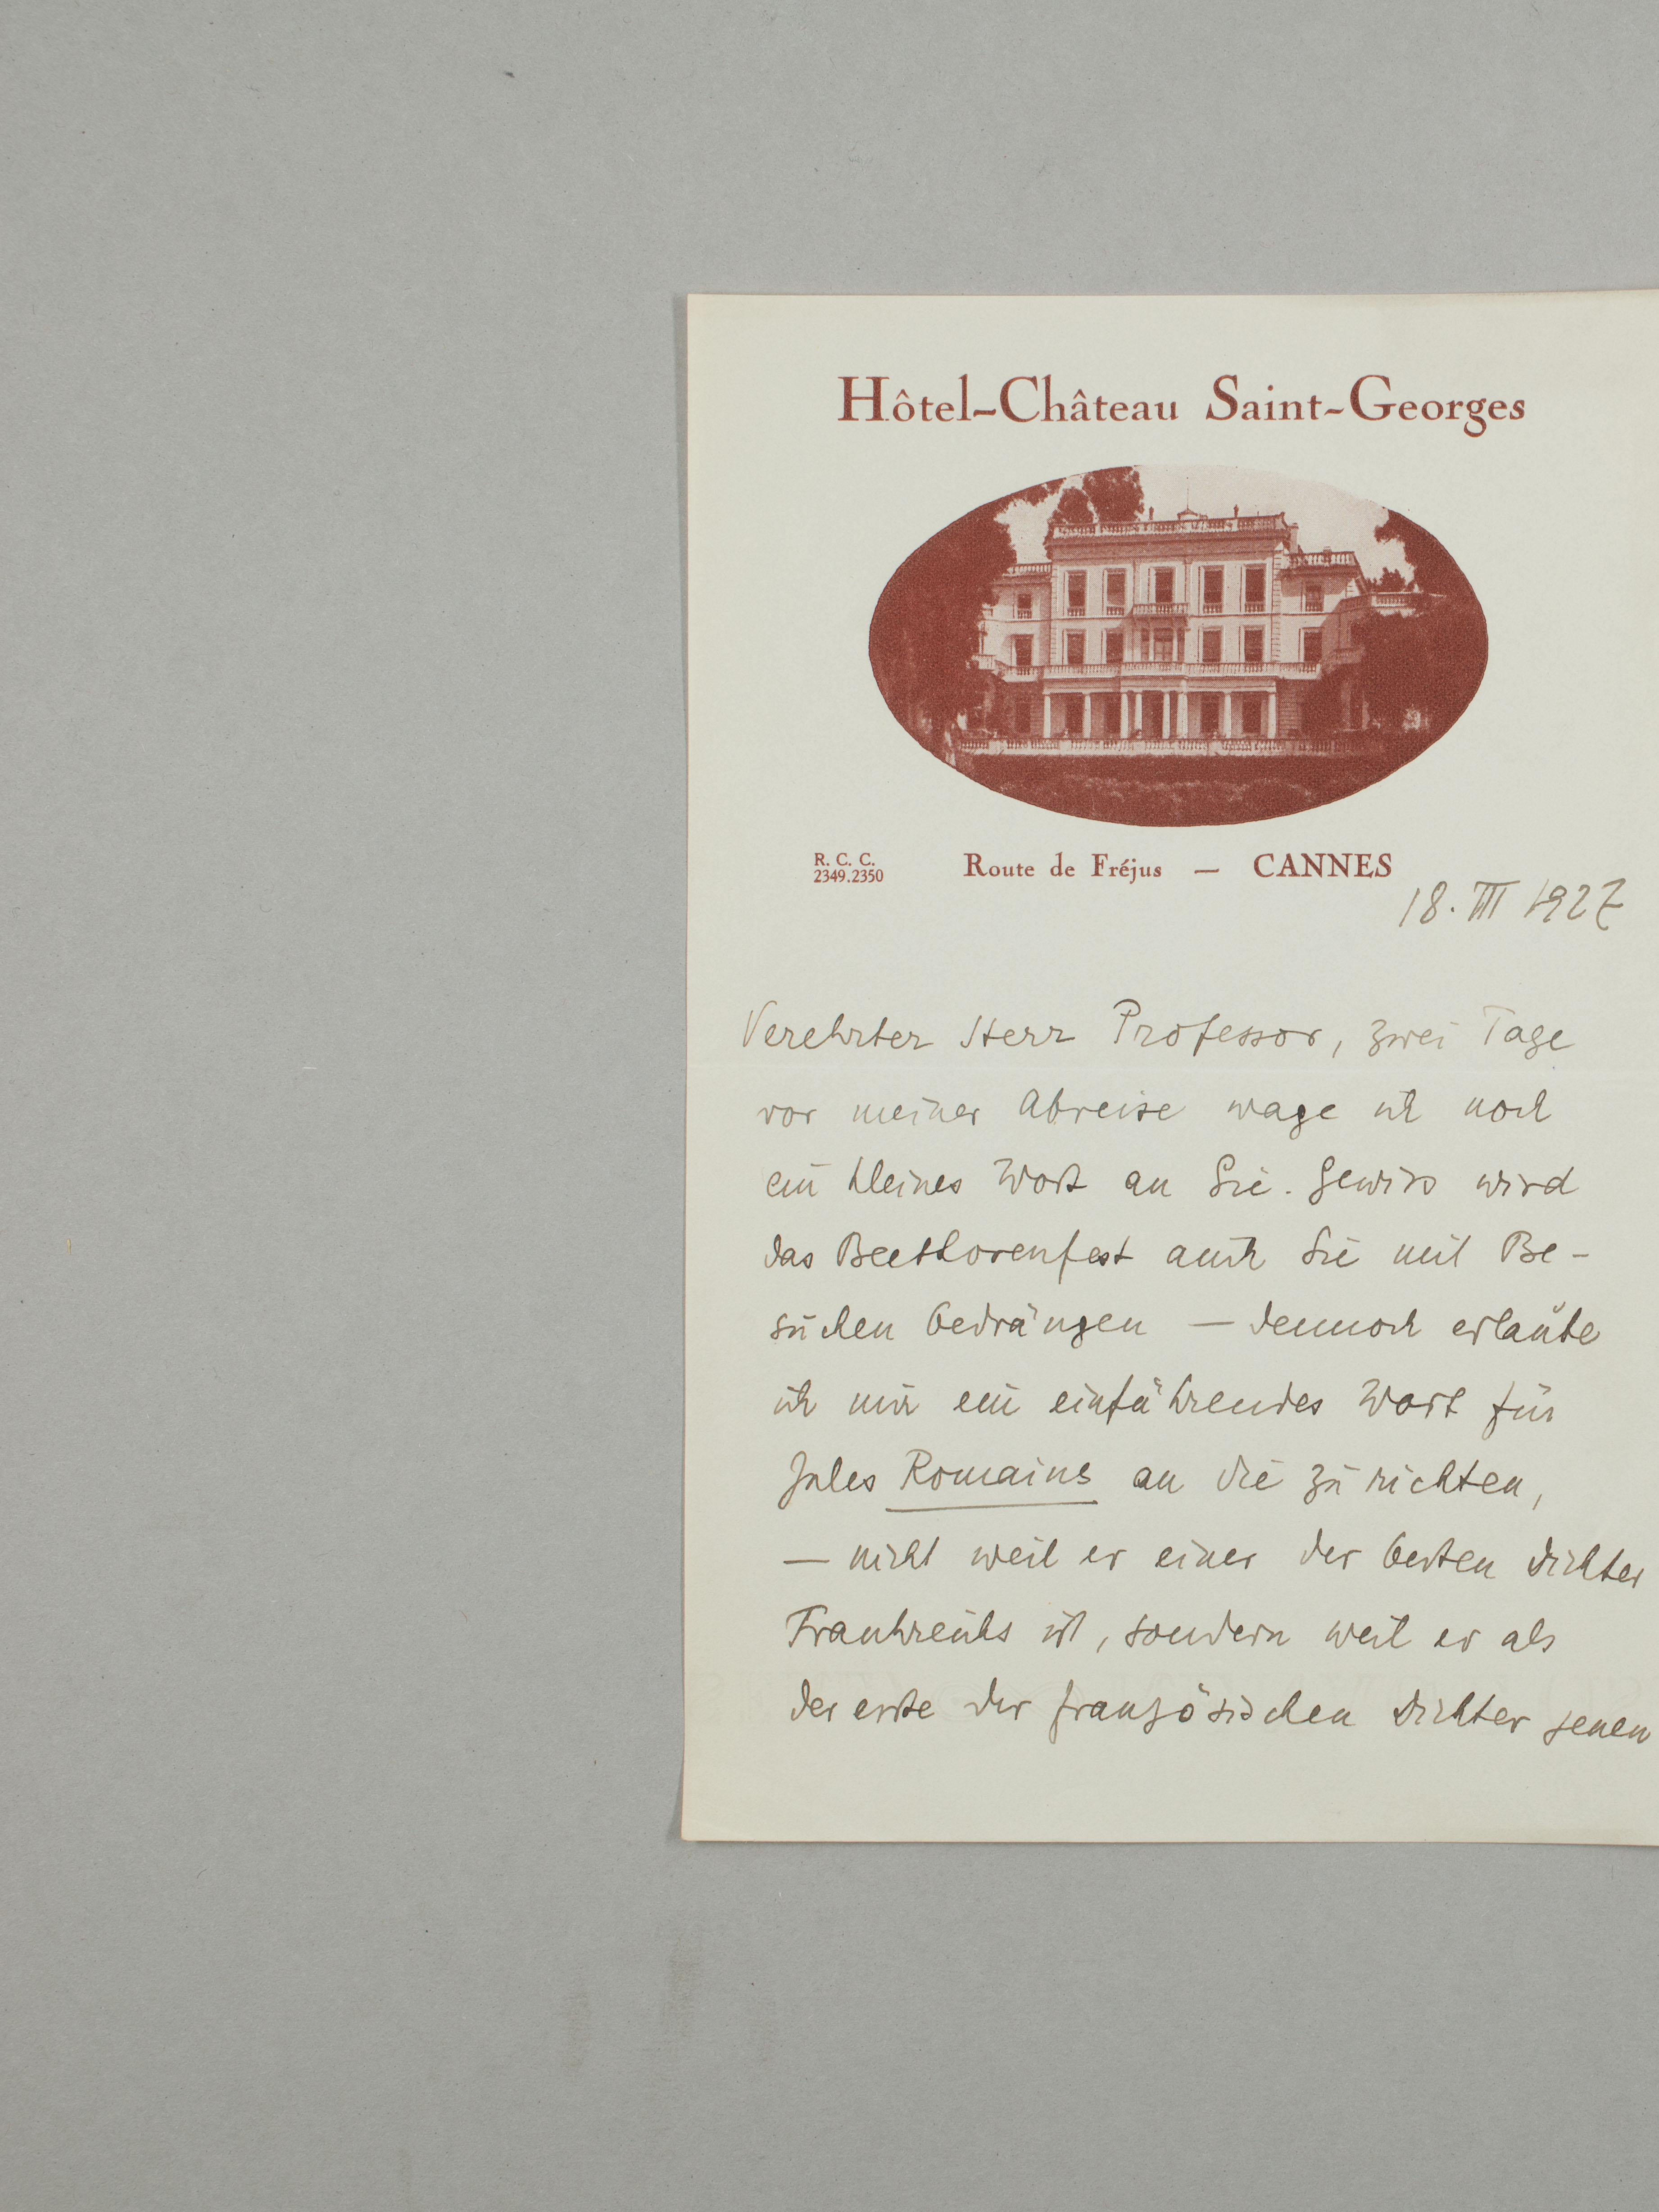 Hôtel-Château Saint-Georges
R. C. C.
2349.2350
Route de Fréjus — CANNES
18. III 1927
Verehrter Herr Professor, zwei Tage
vor meiner Abreise wage ich noch
ein kleines Wort an Sie. Gewiss wird
das Beethovenfest auch Sie mit Be-
suchen bedrängen — dennoch erlaube
ich mir ein einführendes Wort für
Jules Romains an Sie zu richten,
— nicht weil er einer der besten Dichter
Frankreichs ist, sondern weil er als
der erste der französischen Dichter jenen